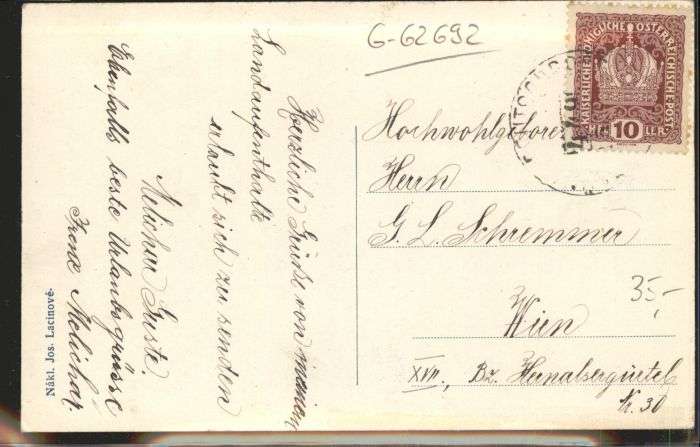 G-62692
KAISERLICHE KÖNIGLICHE ÖSTERREICHISCHE POST
10
Herzliche Grüße von meinem
Landaufenthalte
erlaubt sich zu senden
Melichar Guste.
Ebenfalls beste Urlaubsgrüsse
Franz Melichar
Hochwohlgeboren
Herrn
G. L. Schremmer
Wien
XVII., Bz. Hernalsergürtel
Nr. 30
35,-
Nákl. Jos. Lacinové.